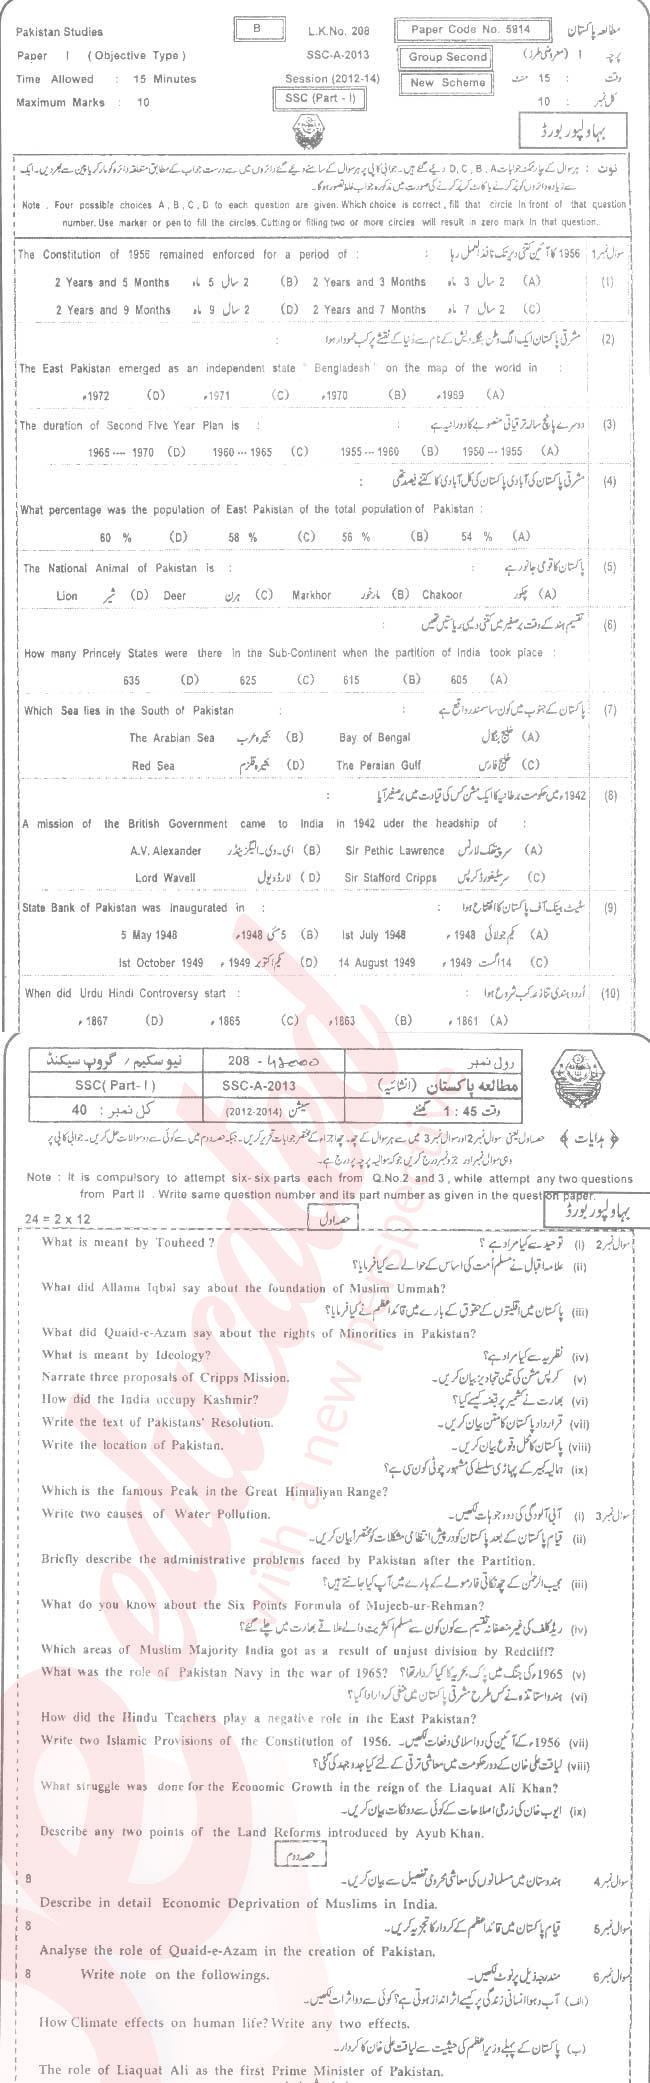 Pakistan Studies B L.K.No. 208 Paper Code No. 5914 مطالعہ پاکستان
Paper I ( Objective Type ) SSC-A-2013 Group Second پرچہ I (معروضی طرز)
Time Allowed : 15 Minutes Session (2012-14) New Scheme وقت : 15 منٹ
Maximum Marks : 10 SSC (Part - I) کل نمبر : 10
بہاولپور بورڈ
نوٹ : ہر سوال کے چار ممکنہ جوابات D, C, B, A دیے گئے ہیں۔ جوابی کاپی پر ہر سوال کے سامنے دیے گئے دائروں میں سے درست جواب کے مطابق متعلقہ دائرہ کو مارکر یا پین سے بھر دیں۔ ایک
سے زیادہ دائروں کو پُر کرنے یا کاٹ کر پُر کرنے کی صورت میں مذکورہ جواب غلط تصور ہوگا۔
Note . Four possible choices A , B , C , D to each question are given. Which choice is correct , fill that circle In front of that question
number. Use marker or pen to fill the circles. Cutting or filling two or more circles will result in zero mark In that question..
The Constitution of 1956 remained enforced for a period of : : 1956 کا آئین کتنی دیر تک نافذ العمل رہا سوال نمبر 1
2 Years and 5 Months 2 سال 5 ماہ (B) 2 Years and 3 Months 2 سال 3 ماہ (A) (1)
2 Years and 9 Months 2 سال 9 ماہ (D) 2 Years and 7 Months 2 سال 7 ماہ (C)
: مشرقی پاکستان ایک الگ وطن بنگلہ دیش کے نام سے دُنیا کے نقشے پر کب نمودار ہوا (2)
The East Pakistan emerged as an independent state " Bengladesh " on the map of the world in :
1972ء (D) 1971ء (C) 1970ء (B) 1969ء (A)
The duration of Second Five Year Plan is : : دوسرے پانچ سالہ ترقیاتی منصوبے کا دورانیہ ہے (3)
1965 ---- 1970 (D) 1960 --- 1965 (C) 1955 --- 1960 (B) 1950 --- 1955 (A)
: مشرقی پاکستان کی آبادی پاکستان کی کل آبادی کا کتنے فیصد تھی (4)
What percentage was the population of East Pakistan of the total population of Pakistan :
60 % (D) 58 % (C) 56 % (B) 54 % (A)
The National Animal of Pakistan is : : پاکستان کا قومی جانور ہے (5)
Lion شیر (D) Deer ہرن (C) Markhor مارخور (B) Chakoor چکور (A)
: تقسیم ہند کے وقت برصغیر میں کتنی دیسی ریاستیں تھیں (6)
How many Princely States were there in the Sub-Continent when the partition of India took place :
635 (D) 625 (C) 615 (B) 605 (A)
Which Sea lies in the South of Pakistan : : پاکستان کے جنوب میں کون سا سمندر واقع ہے (7)
The Arabian Sea بحیرہ عرب (B) Bay of Bengal خلیج بنگال (A)
Red Sea بحیرہ قلزم (D) The Persian Gulf خلیج فارس (C)
: 1942ء میں حکومت برطانیہ کا ایک مشن کس کی قیادت میں برصغیر آیا (8)
A mission of the British Government came to India in 1942 uder the headship of :
A.V. Alexander اے۔وی۔الیگزینڈر (B) Sir Pethic Lawrence سر پیتھک لارنس (A)
Lord Wavell لارڈ ویول (D) Sir Stafford Cripps سر سٹیفورڈ کرپس (C)
State Bank of Pakistan was inaugurated in : : سٹیٹ بینک آف پاکستان کا افتتاح ہوا (9)
5 May 1948 5 مئی 1948ء (B) Ist July 1948 یکم جولائی 1948ء (A)
Ist October 1949 یکم اکتوبر 1949ء (D) 14 August 1949 14 اگست 1949ء (C)
When did Urdu Hindi Controversy start : : اُردو ہندی تنازعہ کب شروع ہوا (10)
1867ء (D) 1865ء (C) 1863ء (B) 1861ء (A)
نیو سکیم / گروپ سیکنڈ 208 - رول نمبر
SSC( Part- I ) SSC-A-2013 مطالعہ پاکستان (انشائیہ)
کل نمبر : 40 سیشن (2012-2014) وقت 1 : 45 گھنٹے
﴿ ہدایات ﴾ حصہ اول یعنی سوال نمبر 2 اور سوال نمبر 3 میں سے ہر سوال کے چھ۔ چھ اجزاء کے مختصر جوابات تحریر کریں۔ جبکہ حصہ دوم میں سے کوئی سے دو سوالات حل کریں۔ جوابی کاپی پر
وہی سوال نمبر اور جزو نمبر درج کریں جو کہ سوالیہ پرچہ پر درج ہے۔
Note : It is compulsory to attempt six-six parts each from Q.No.2 and 3 , while attempt any two questions
from Part II . Write same question number and its part number as given in the question paper.
24 = 2 x 12 حصہ اول بہاولپور بورڈ
What is meant by Touheed ? سوال نمبر 2 (i) توحید سے کیا مراد ہے ؟
(ii) علامہ اقبال نے مسلم اُمت کی اساس کے حوالے سے کیا فرمایا؟
What did Allama Iqbal say about the foundation of Muslim Ummah?
(iii) پاکستان میں اقلیتوں کے حقوق کے بارے میں قائد اعظم نے کیا فرمایا؟
What did Quaid-e-Azam say about the rights of Minorities in Pakistan?
What is meant by Ideology? (iv) نظریہ سے کیا مراد ہے؟
Narrate three proposals of Cripps Mission. (v) کرپس مشن کی تین تجاویز بیان کریں۔
How did the India occupy Kashmir? (vi) بھارت نے کشمیر پر قبضہ کیسے کیا؟
Write the text of Pakistans' Resolution. (vii) قرارداد پاکستان کا متن بیان کریں۔
Write the location of Pakistan. (viii) پاکستان کا محل وقوع بیان کریں۔
(ix) ہمالیہ کبیر کے پہاڑی سلسلے کی مشہور چوٹی کون سی ہے؟
Which is the famous Peak in the Great Himaliyan Range?
Write two causes of Water Pollution. سوال نمبر 3 (i) آبی آلودگی کی دو وجوہات لکھیں۔
(ii) قیام پاکستان کے بعد پاکستان کو درپیش انتظامی مشکلات کو مختصراً بیان کریں۔
Briefly describe the administrative problems faced by Pakistan after the Partition.
(iii) مجیب الرحمٰن کے چھ نکاتی فارمولے کے بارے میں آپ کیا جانتے ہیں؟
What do you know about the Six Points Formula of Mujeeb-ur-Rehman?
(iv) ریڈ کلف کی غیر منصفانہ تقسیم سے کون کون سے مسلم اکثریت والے علاقے بھارت میں چلے گئے؟
Which areas of Muslim Majority India got as a result of unjust division by Redcliff?
What was the role of Pakistan Navy in the war of 1965? (v) 1965ء کی جنگ میں پاک بحریہ کا کیا کردار تھا؟
(vi) ہندو اساتذہ نے کس طرح مشرقی پاکستان میں منفی کردار ادا کیا؟
How did the Hindu Teachers play a negative role in the East Pakistan?
Write two Islamic Provisions of the Constitution of 1956. (vii) 1956ء کے آئین کی دو اسلامی دفعات لکھیں۔
(viii) لیاقت علی خان کے دور حکومت میں معاشی ترقی کے لئے کیا جدوجہد کی گئی؟
What struggle was done for the Economic Growth in the reign of the Liaquat Ali Khan?
(ix) ایوب خان کی زرعی اصلاحات کے کوئی سے دو نکات بیان کریں۔
Describe any two points of the Land Reforms introduced by Ayub Khan.
حصہ دوم
8 سوال نمبر 4 ہندوستان میں مسلمانوں کی معاشی محرومی تفصیل سے بیان کریں۔
Describe in detail Economic Deprivation of Muslims in India.
8 سوال نمبر 5 قیام پاکستان میں قائد اعظم کے کردار کا تجزیہ کریں۔
Analyse the role of Quaid-e-Azam in the creation of Pakistan.
8 Write note on the followings. سوال نمبر 6 مندرجہ ذیل پر نوٹ لکھیں۔
(الف) آب و ہوا انسانی زندگی پر کیسے اثر انداز ہوتی ہے؟ کوئی سے دو اثرات لکھیں۔
How Climate effects on human life? Write any two effects.
(ب) پاکستان کے پہلے وزیر اعظم کی حیثیت سے لیاقت علی خان کا کردار۔
The role of Liaquat Ali as the first Prime Minister of Pakistan.
educated
with a new perspective